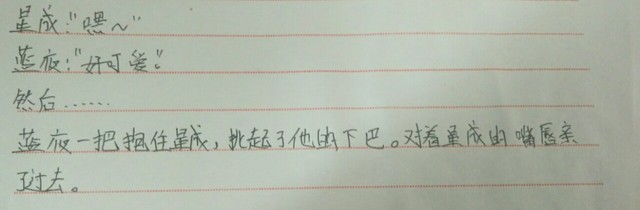 星成:"嘿~"
蓝夜:"好可爱。"
然后……
蓝夜一把抱住星成，挑起了他的下巴。对着星成的嘴唇亲
了过去。